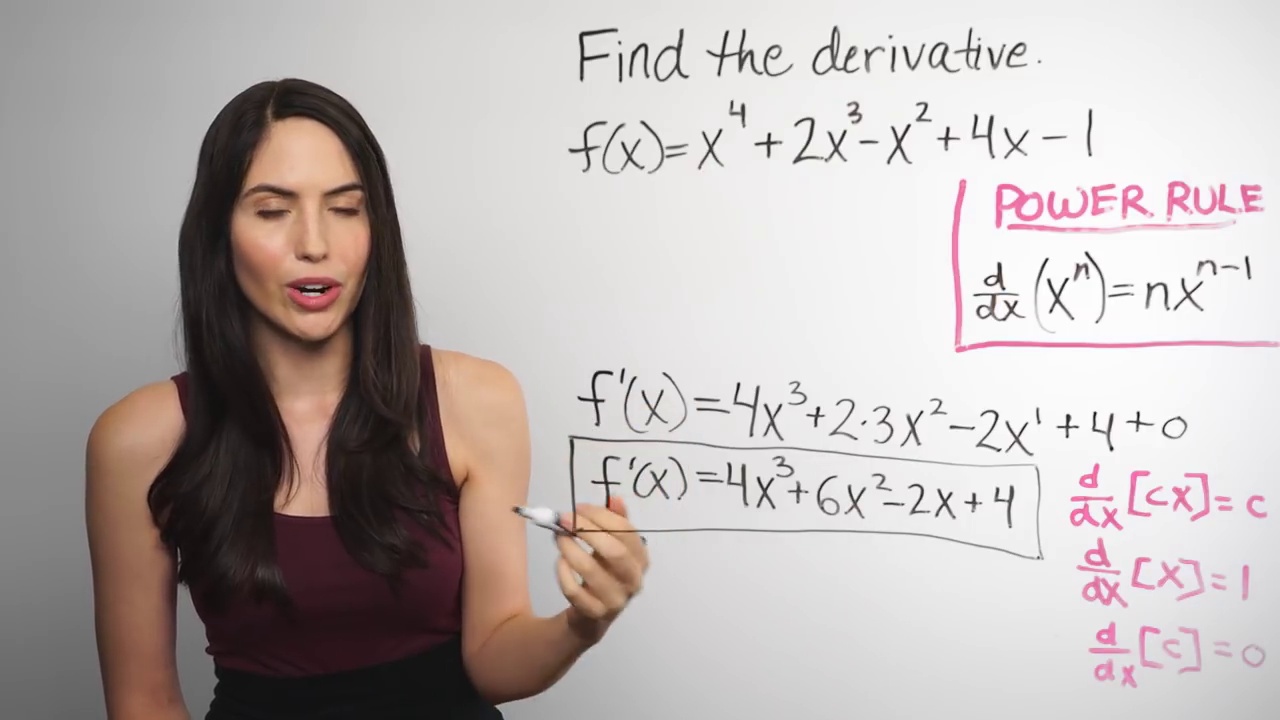 Find the derivative.
f(x)=x⁴+2x³-x²+4x-1
POWER RULE
d/dx(xⁿ)=nxⁿ⁻¹
f'(x)=4x³+2·3x²-2x¹+4+0
f'(x)=4x³+6x²-2x+4
d/dx[cx]=c
d/dx[x]=1
d/dx[c]=0